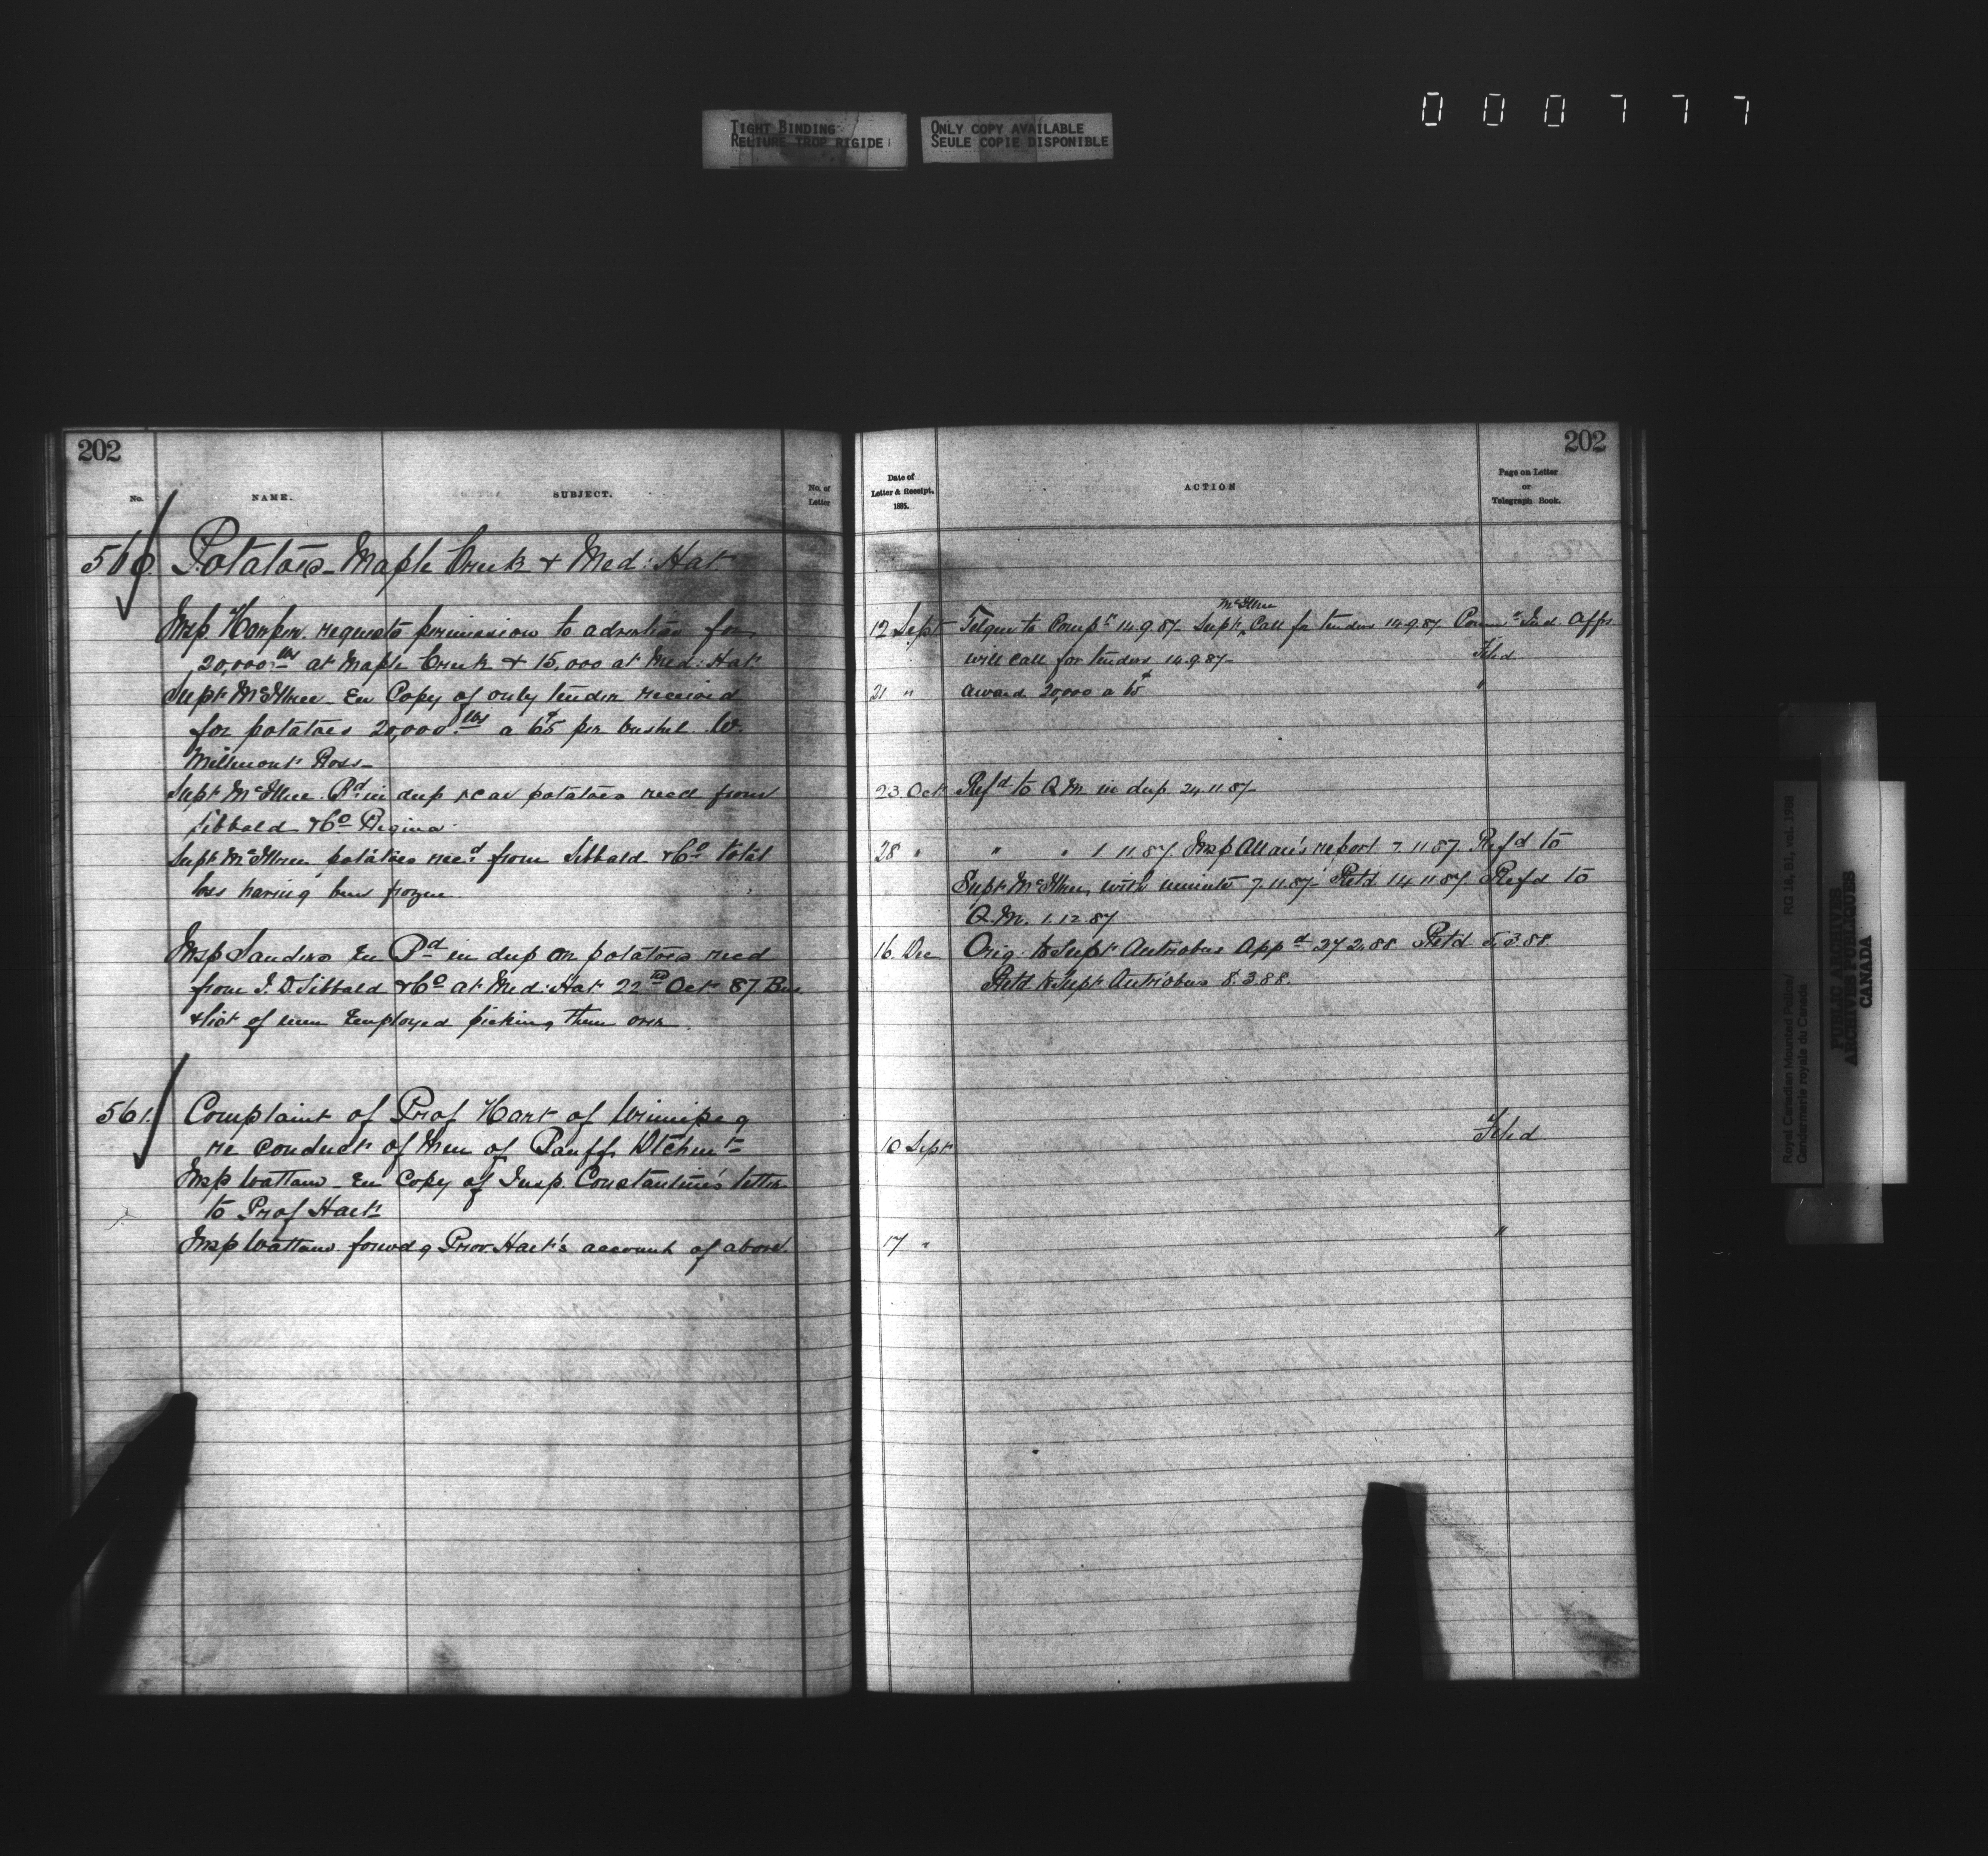 000777
TIGHT BINDING
RELIURE TROP RIGIDE
ONLY COPY AVAILABLE
SEULE COPIE DISPONIBLE
202
No. NAME. SUBJECT. No. of Letter
560. Potatoes - Maple Creek & Med: Hat
Insp. Harper requests permission to advertise for
20,000 lbs at Maple Creek & 15,000 at Med: Hat
Supt McIllree - En Copy of only tender received
for potatoes 20,000 lbs a 65¢ per bushel W.
Millmont Ross -
Supt McIllree Pd in dup re car potatoes recd from
Sibbald & Co Regina
Supt McIllree potatoes recd from Sibbald & Co total
loss having been frozen
Insp Sanders En Pd in dup on potatoes recd
from J. D. Sibbald & Co at Med: Hat 22nd Oct 87
& list of men Employed picking them over
561. Complaint of Prof Hart of Winnipeg
re conduct of Men of Banff Dtchmt
Insp Wattam - En Copy of Insp. Constantine's letter
to Prof Hart
Insp Wattam forwdg Prov. Hart's account of above
202
Date of Letter & Receipt. 1885. ACTION Page on Letter or Telegraph Book.
12 Sept Telgm to Compr 14.9.87 - Supt McIllree Call for tenders 14.9.87 Commr Ind Affrs
will call for tenders 14.9.87 - Filed
21 " Award 20,000 a 65¢ "
23. Oct Refd to Q.M. in dup 24.11.87
28 " " " 1.11.87 Insp Allan's report 7.11.87. Refd to
Supt McIllree, with minute 7.11.87 Retd 14.11.87 Refd to
Q.M. 1.12.87
16. Dec Orig. to Supt Antrobus Appd 27.2.88 Retd 5.3.88.
Retd to Supt Antrobus 8.3.88.
10 Sept Filed
17 " "
Royal Canadian Mounted Police/
Gendarmerie royale du Canada
RG 18, B1, vol. 1988
PUBLIC ARCHIVES
ARCHIVES PUBLIQUES
CANADA